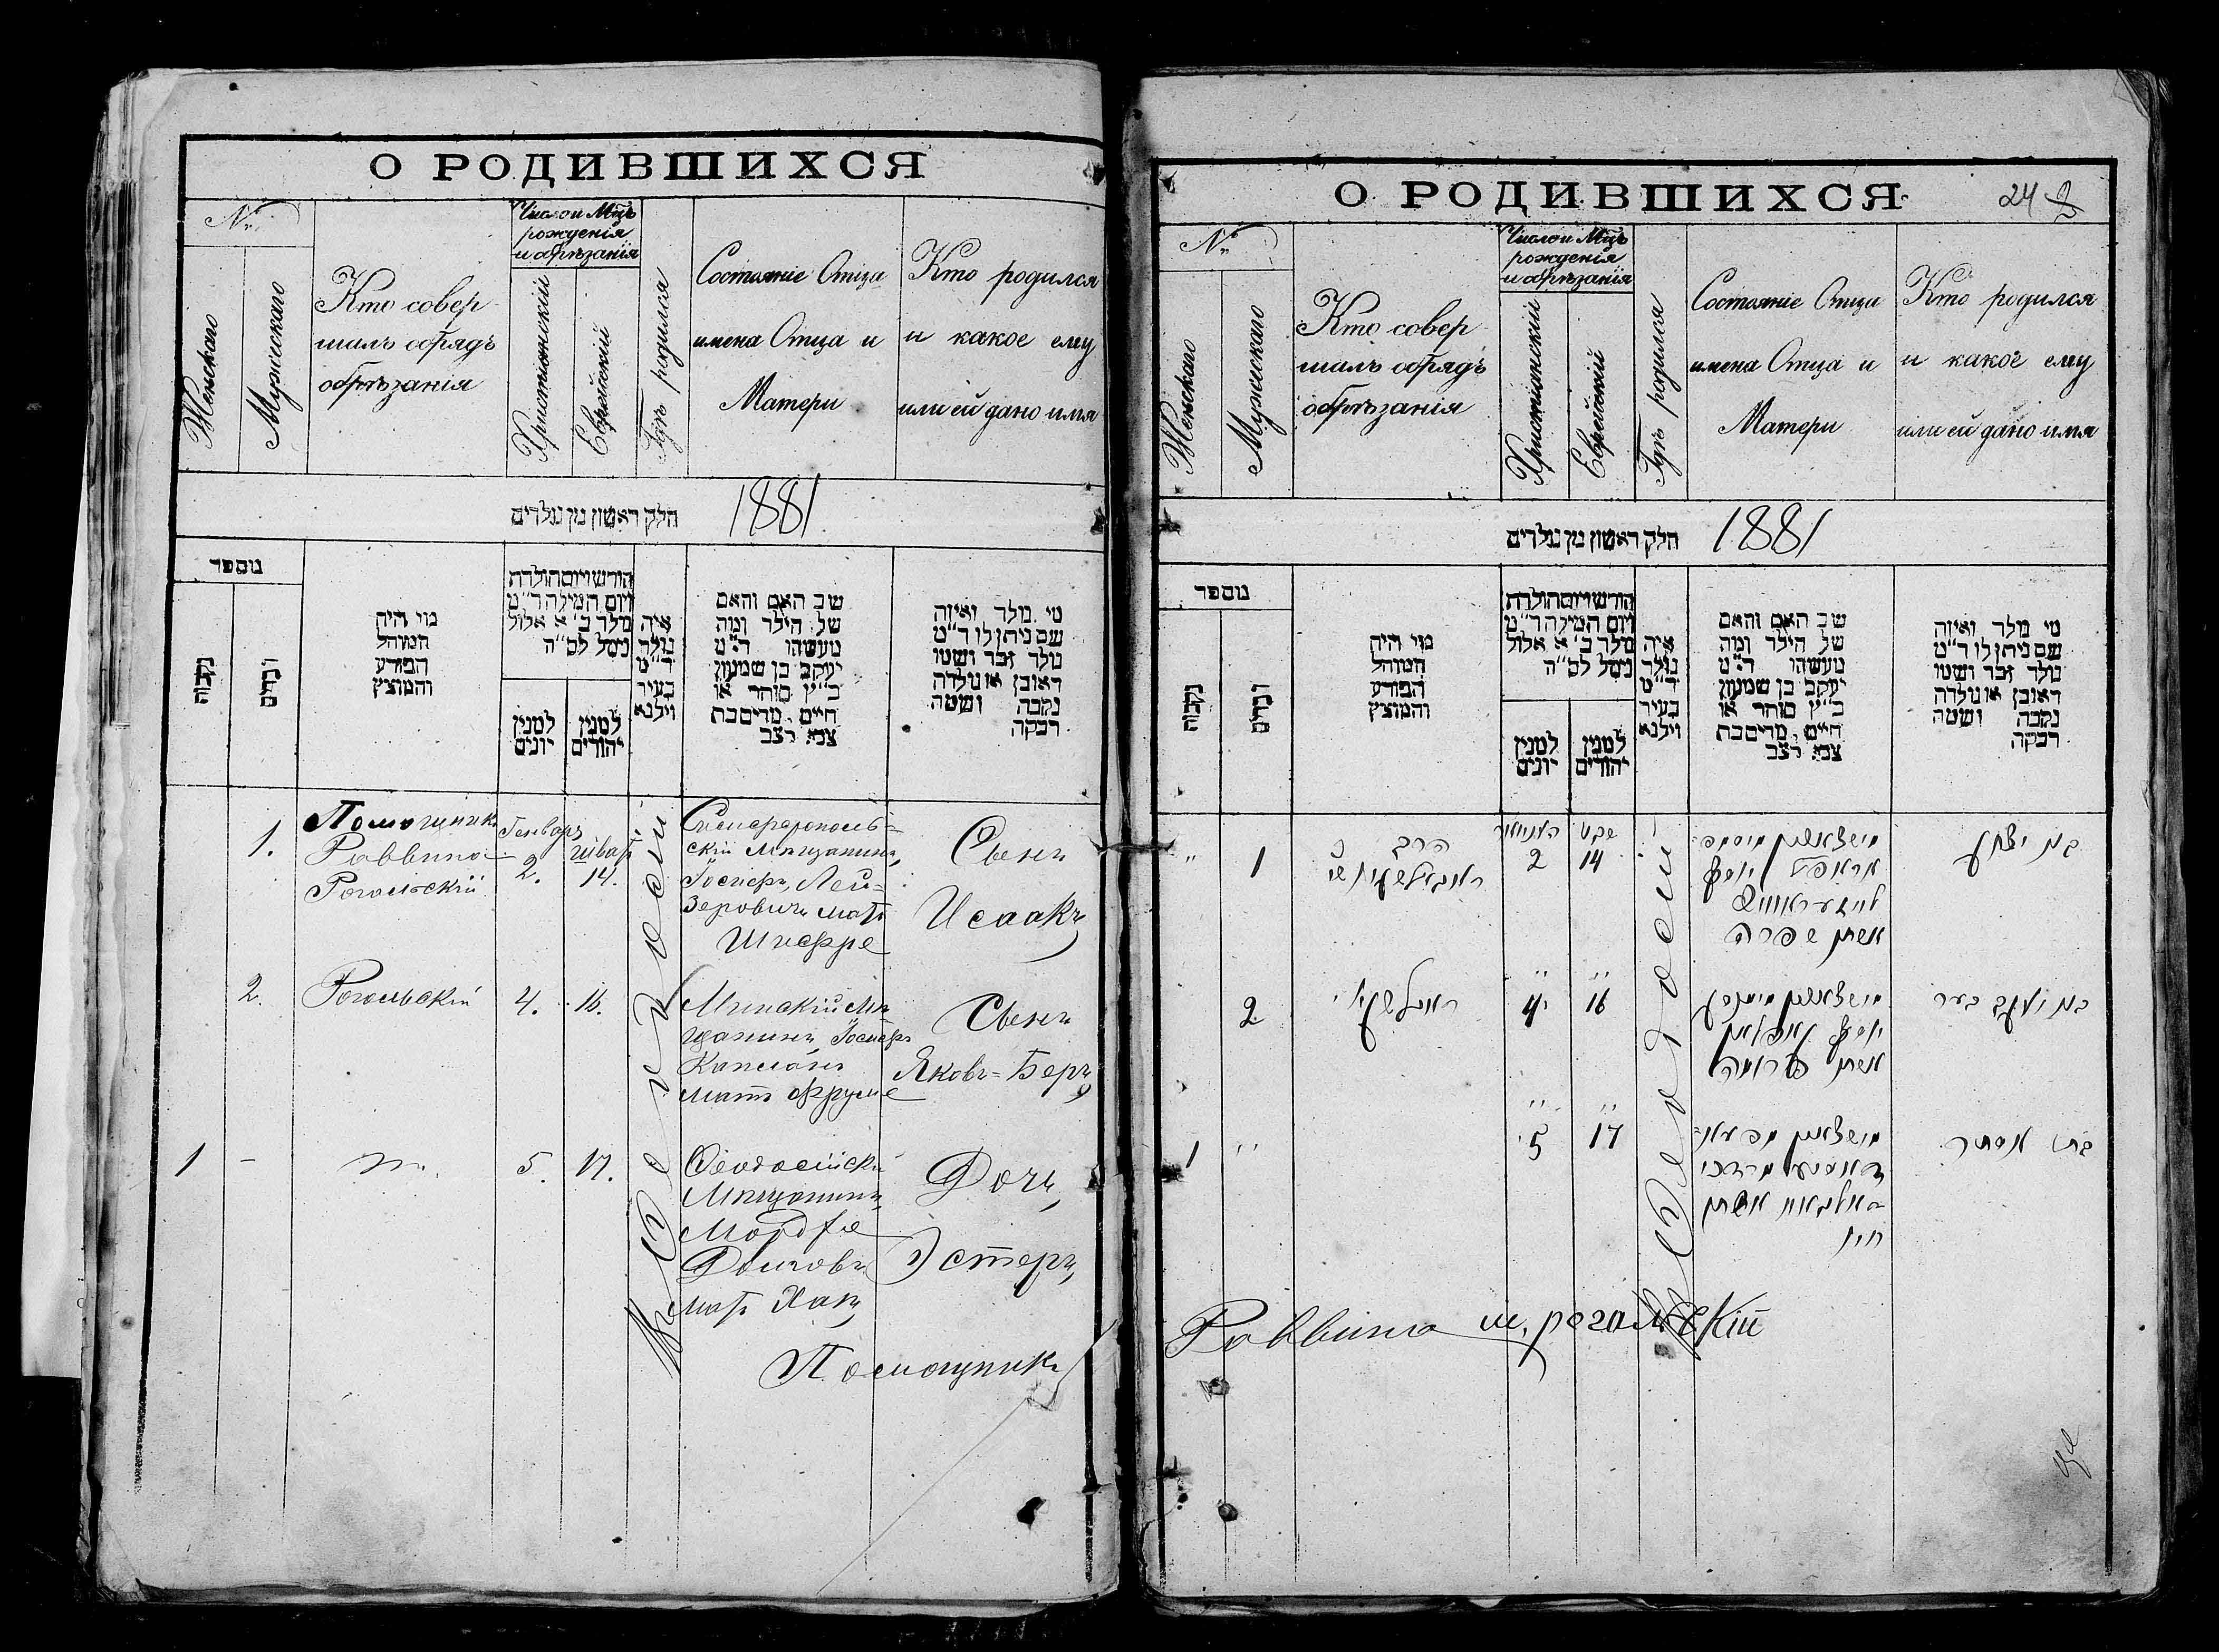 О РОДИВШИХСЯ
№
Женскаго
Мужескаго
Кто совер
шалъ обрядъ
обрѣзанія
Число и Мцъ
рожденія
и обрѣзанія
Христіанскій
Еврейскій
Гдѣ родился
Состояніе Отца
имена Отца и
Матери
Кто родился
и какое ему
или ей дано имя
חלק ראשון מן נולדים 1881
מספר
נקבות
זכרים
מי היה
המוהל
הפורע
והמוצץ
חודש ויום הולדת
ויום המילה ד"מ
מולד ב' א אלול
נימל לס"ה
למנין
יונים
למנין
יהודים
איה
נולד
ד"מ
בעיר
וילנא
שב האם והאם
של הילד ומה
מעשהו ד"מ
יעקב בן שמעון
כ"ץ סוחר או
חיים, מרים בת
צבי רצב
מי נולד ואיזה
שם ניתן לו ד"מ
נולד זכר ושמו
ראובן או נולדה
נקבה ושמה
רבקה
1.
Помощникъ
Раввина
Рогальскій
Генварь
2.
Шватъ
14.
Симферополь-
скій Мѣщанинъ,
Іосифъ Лей-
зеровичъ мать
Шифре
Сынъ
Исаакъ
2.
Рогальскій
4.
16.
Минскій Мѣ
щанинъ Іосифъ
Капланъ
мать Фруме
Сынъ
Яковъ-Беръ
1
–
5.
17.
Ѳеодосійскій
Мѣщанинъ
Мордхе
мать Хая
Дочь,
Эстеръ,
Въ Ѳеодосіи
Помощникъ
О РОДИВШИХСЯ
24
№
Женскаго
Мужескаго
Кто совер
шалъ обрядъ
обрѣзанія
Число и Мцъ
рожденія
и обрѣзанія
Христіанскій
Еврейскій
Гдѣ родился
Состояніе Отца
имена Отца и
Матери
Кто родился
и какое ему
или ей дано имя
חלק ראשון מן נולדים 1881
מספר
נקבות
זכרים
מי היה
המוהל
הפורע
והמוצץ
חודש ויום הולדת
ויום המילה ד"מ
מולד ב' א אלול
נימל לס"ה
למנין
יונים
למנין
יהודים
איה
נולד
ד"מ
בעיר
וילנא
שב האם והאם
של הילד ומה
מעשהו ד"מ
יעקב בן שמעון
כ"ץ סוחר או
חיים, מרים בת
צבי רצב
מי נולד ואיזה
שם ניתן לו ד"מ
נולד זכר ושמו
ראובן או נולדה
נקבה ושמה
רבקה
"
1
הרב
2
שבט
14
יוסף
אשתו שפרה
בן יצחק
2
4
16
יוסף קאפלאן
אשתו פרומה
בן יעקב בער
1
"
5
17
מרדכי
אשתו
חיה
בת אסתר
Ѳеодосіи
Раввина Ш. Рогальскій